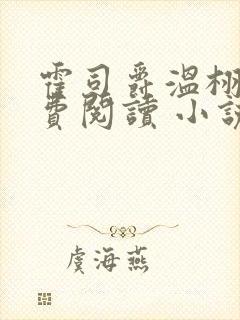 霍司爵溫栩
費閱讀 小說
虞海燕